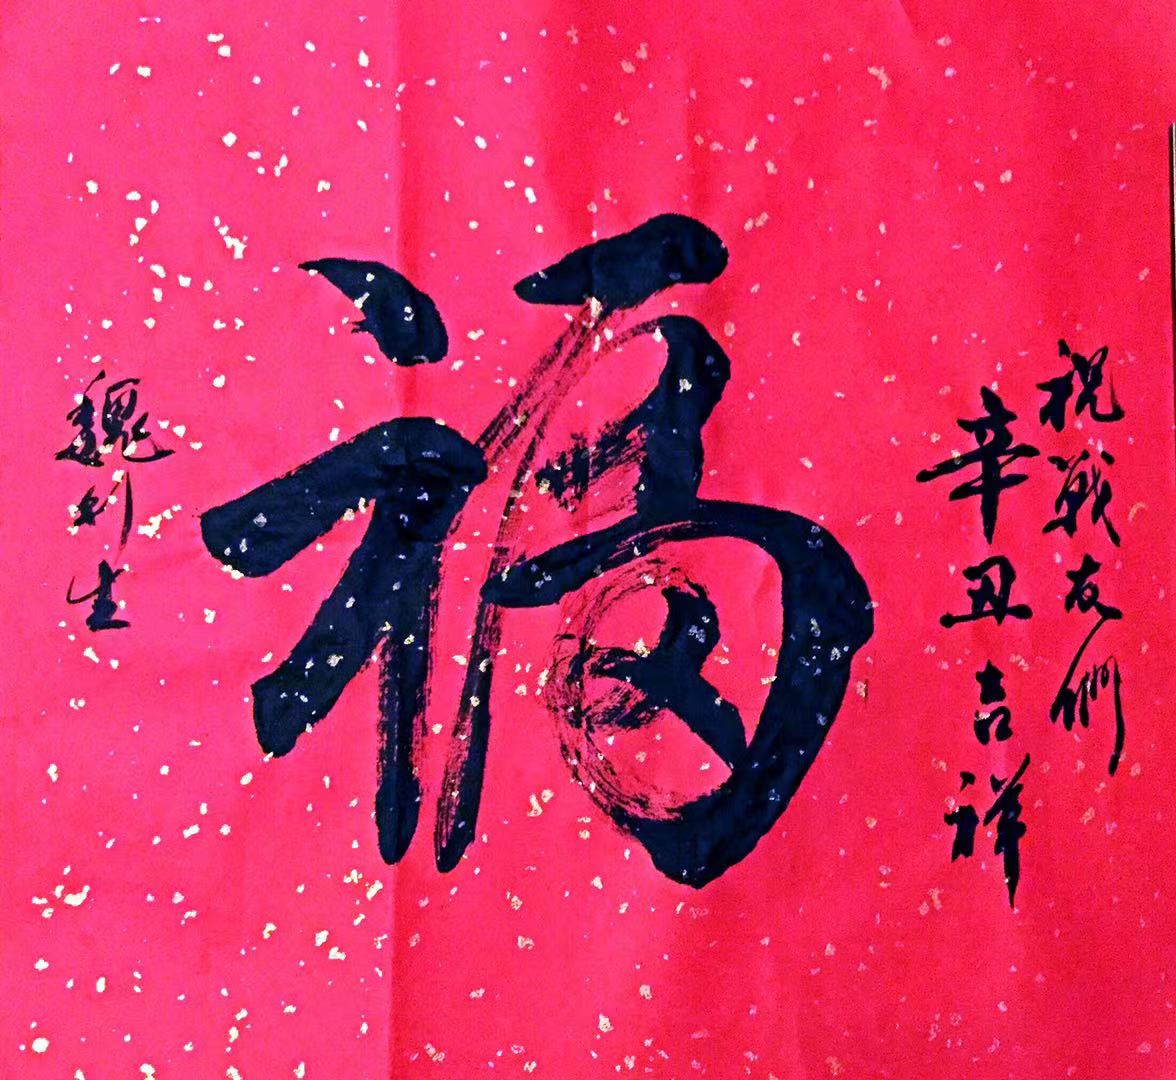 祝戰友們
辛丑吉祥
福
魏利生